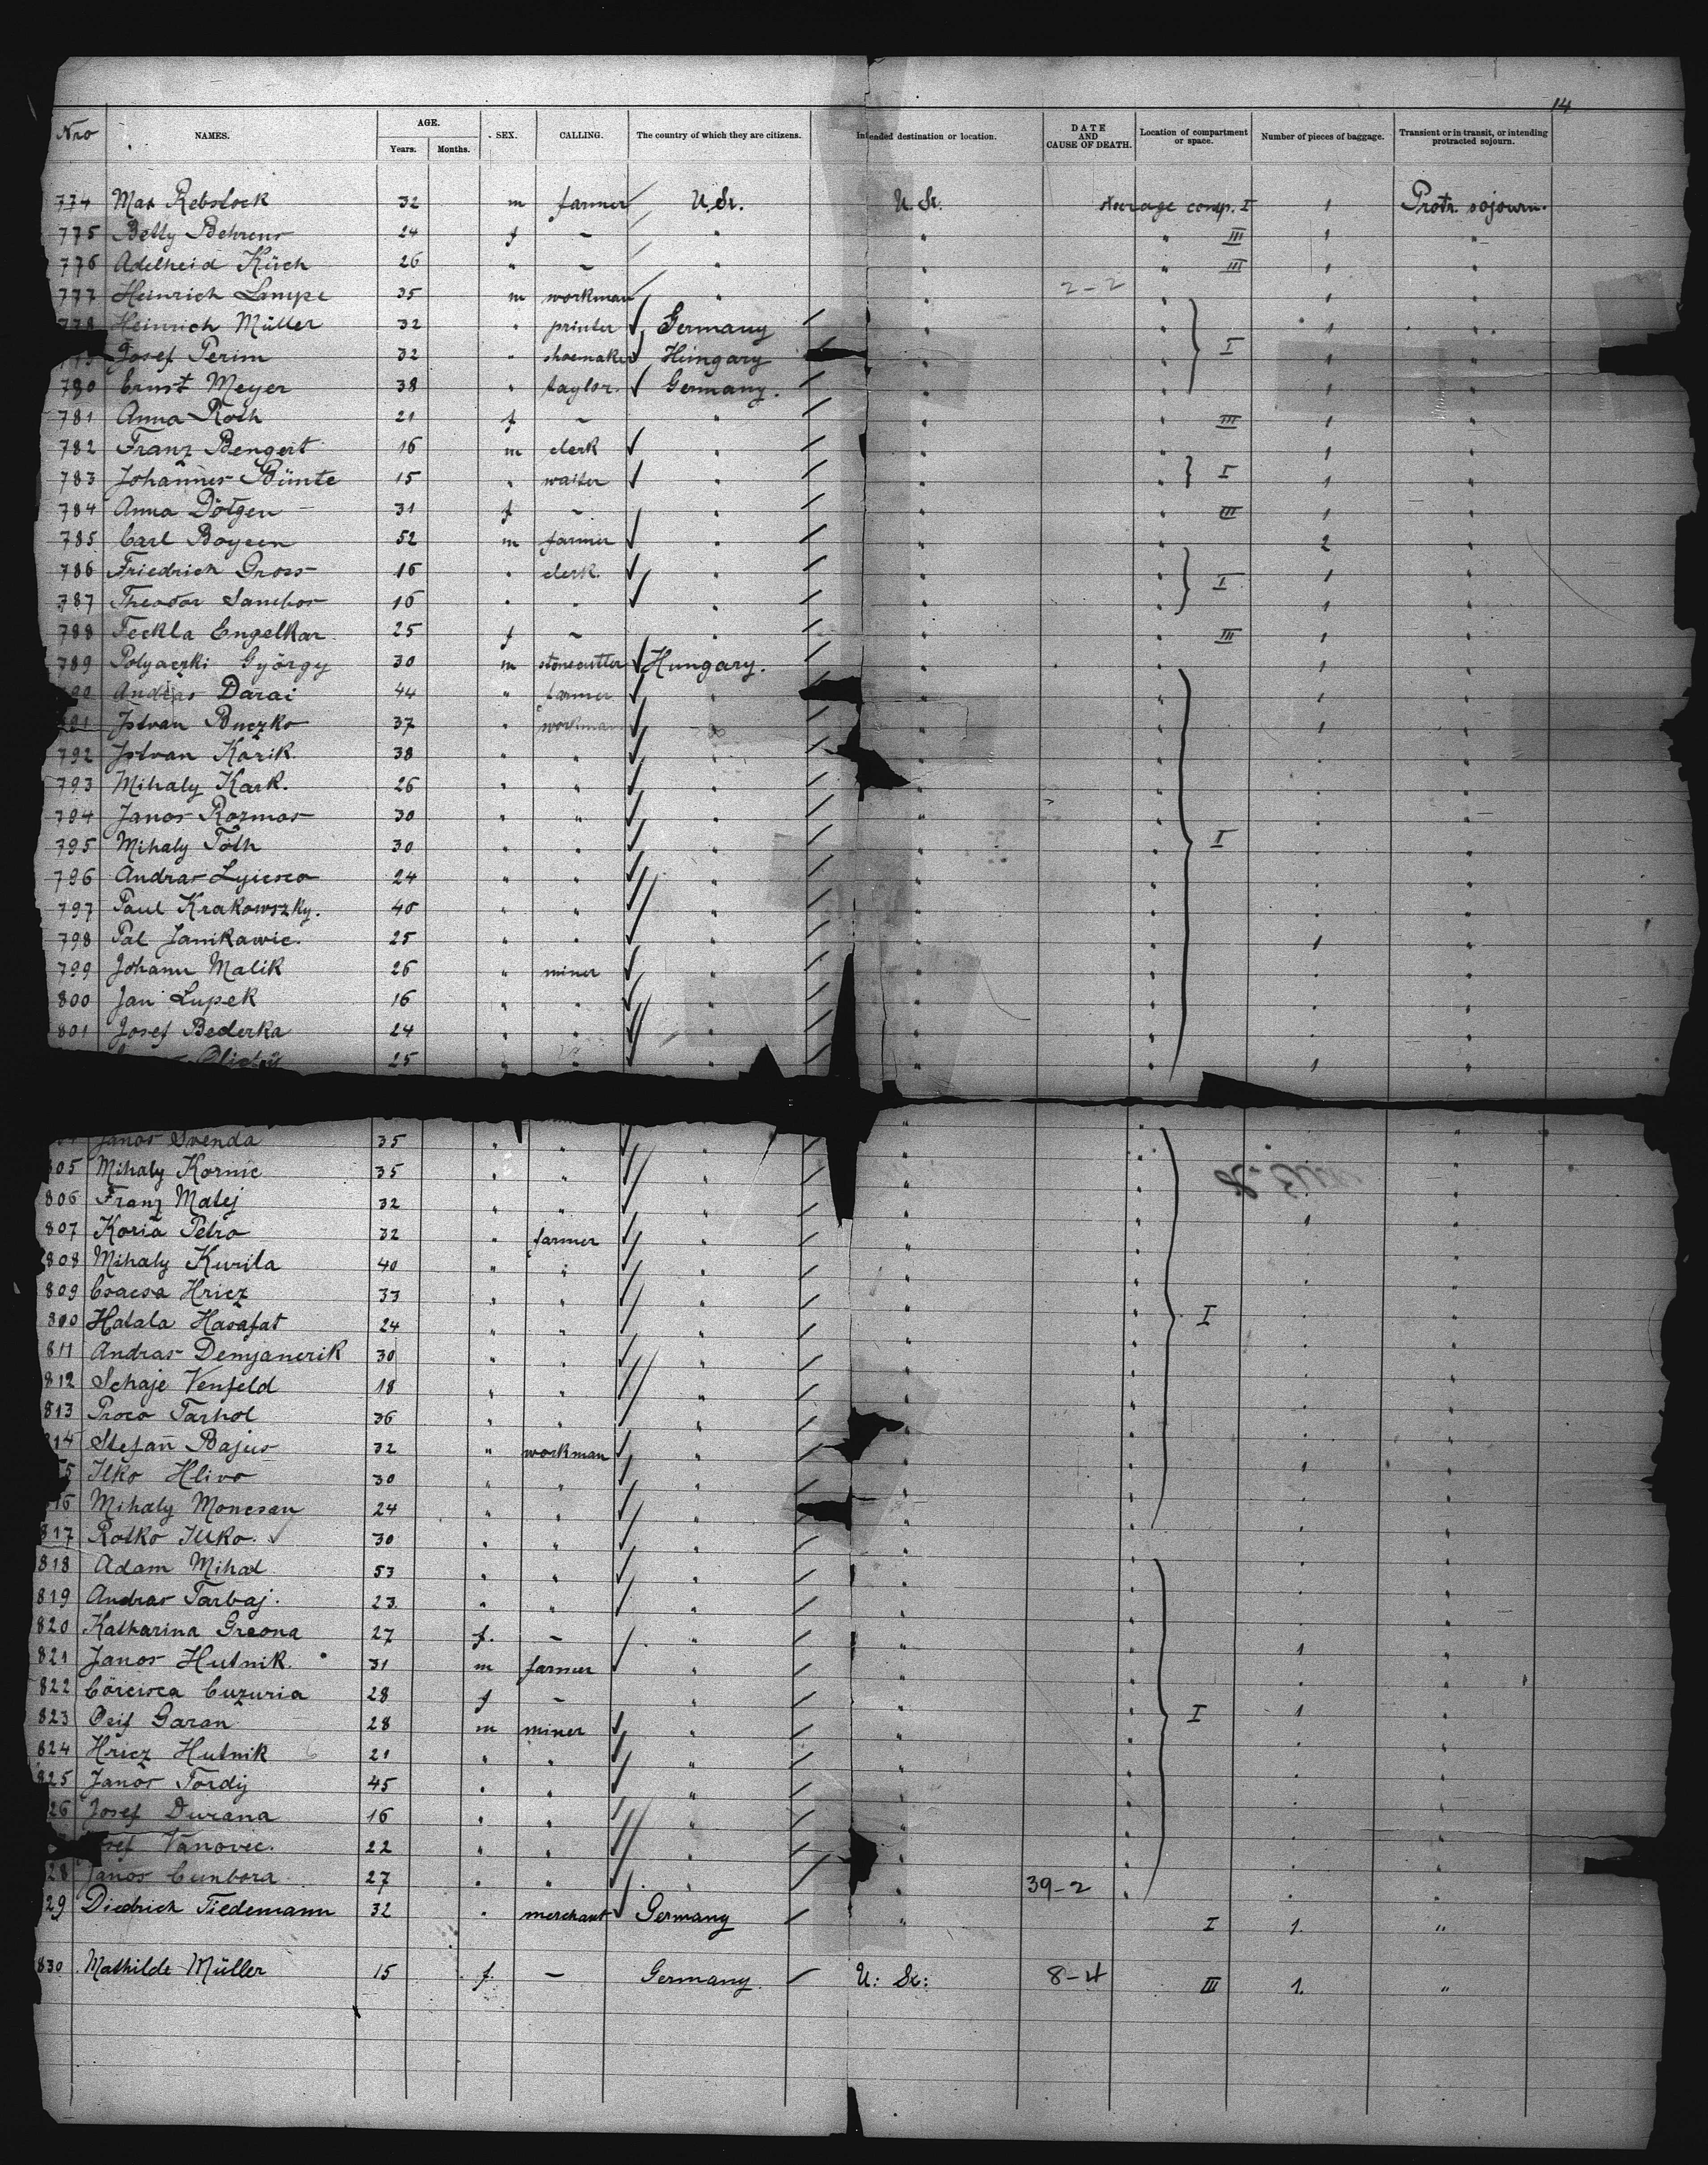 14
Nro NAMES. AGE. Years. Months. SEX. CALLING. The country of which they are citizens. Intended destination or location. DATE AND CAUSE OF DEATH. Location of compartment or space. Number of pieces of baggage. Transient or in transit, or intending protracted sojourn.
774 Max Rebstock 32 m farmer U. St. U. St. steerage comp. I 1 Protr. sojourn.
775 Betty Behrens 24 f – " " " III 1 "
776 Adelheid Küch 26 " – " " " III 1 "
777 Heinrich Lampe 35 m workman " " 2-2 " 1 "
778 Heinrich Müller 32 " printer Germany " " 1 "
Josef Perim 32 " shoemaker Hungary " " I 1 "
780 Ernst Meyer 38 " taylor. Germany. " " 1 "
781 Anna Roth 21 f – " " " III 1 "
782 Franz Bengert 16 m clerk " " " 1 "
783 Johannes Bünte 15 " waiter " " " I 1 "
784 Anna Dötgen 31 f – " " " III 1 "
785 Carl Boysen 52 m farmer " " " 2 "
786 Friedrich Gross 16 " clerk. " " " I 1 "
787 Theodor 16 " " " " " 1 "
788 Teckla Engelkar 25 f – " " " III 1 "
789 Polyaczki György 30 m stonecutter Hungary. " " 1 "
Andras Darai 44 " farmer " " " 1 "
791 Istvan Buczko 37 " workman " " " 1 "
792 Istvan Karik. 38 " " " " " " "
793 Mihaly Kark. 26 " " " " " " "
794 Janos Rozmos 30 " " " " " " "
795 Mihaly Toth 30 " " " " " I " "
796 Andras 24 " " " " " " "
797 Paul Krakowszky. 40 " " " " " " "
798 Pal Janikawic. 25 " " " " " 1 "
799 Johann Malik 26 " miner " " " " "
800 Jan Lupek 16 " " " " " " "
801 Josef Bederka 24 " " " " " " "
25 " " " " " 1 "
Janos Svenda 35 " " " " " "
805 Mihaly Kornic 35 " " " " " "
806 Franz Matej 32 " " " " " " "
807 Koria Petro 32 " farmer " " " 1 "
808 Mihaly Kurila 40 " " " " " " "
809 Csacsa Hricz 33 " " " " " " "
800 Halala Hasafat 24 " " " " " I " "
811 Andras Demjanerik 30 " " " " " " "
812 Schaje Venfeld 18 " " " " " " "
813 Proco Tarhol 36 " " " " " " "
814 Stefan Bajus 32 " workman " " " " "
Ilko Hlivo 30 " " " " " 1 "
816 Mihaly Moncsan 24 " " " " " " "
817 Rotko Ilko. 30 " " " " " " "
818 Adam Mihal 53 " " " " " " "
819 Andras Tarbaj. 23 " " " " " " "
820 Katharina Greona 27 f. – " " " " "
821 Janos Hutnik. 31 m farmer " " " 1 "
822 Cörcisca Cuzuria 28 f – " " " " "
823 Osif Garan 28 m miner " " " I 1 "
824 Hricz Hutnik 21 " " " " " " "
825 Janos Tordij 45 " " " " " " "
26 Josef Durana 16 " " " " " " "
Vanovec. 22 " " " " " " "
28 Janos Cunbora 27 " " " " 39-2 " " "
29 Diedrich Tiedemann 32 " merchant Germany " I 1. "
830 Mathilde Müller 15 f. – Germany. U. St. 8-4 III 1. "